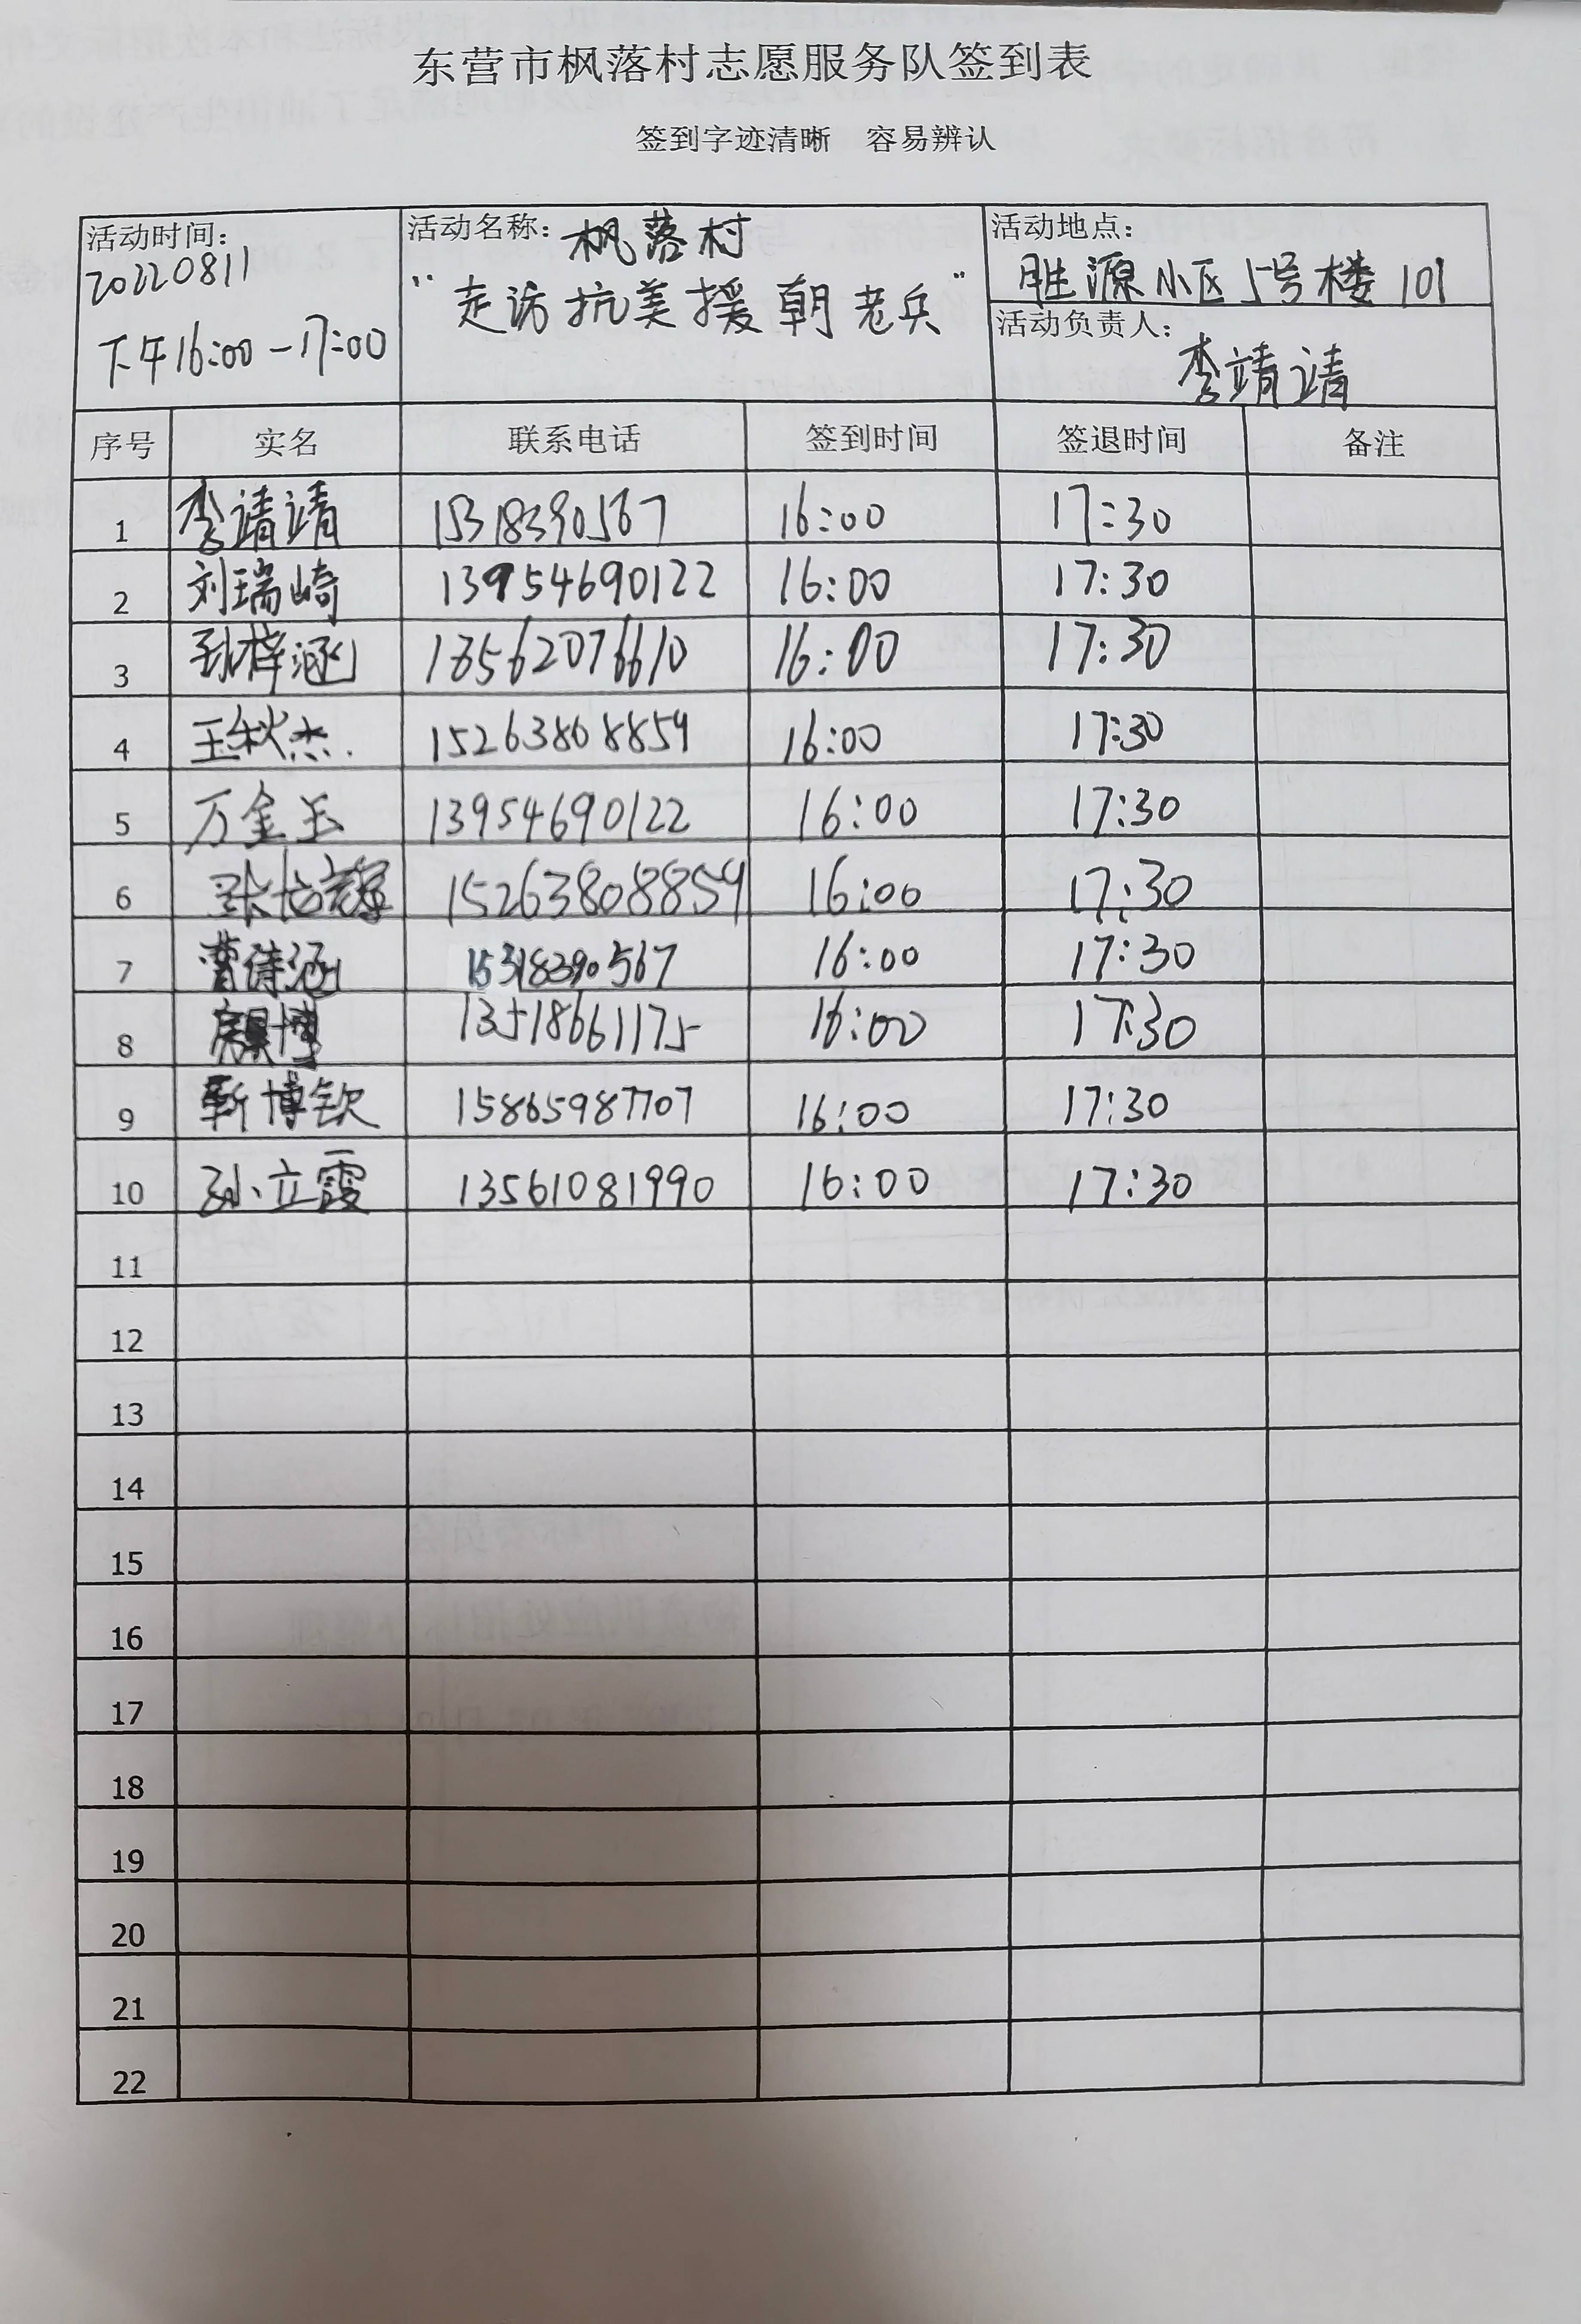 东营市枫落村志愿服务队签到表
签到字迹清晰 容易辨认
活动时间:
20220811
下午16:00-17:00
活动名称: 枫落村
"走访抗美援朝老兵"
活动地点:
胜源小区5号楼101
活动负责人:
李靖靖
序号 实名 联系电话 签到时间 签退时间 备注
1 李靖靖 15318390567 16:00 17:30
2 刘瑞崎 13954690122 16:00 17:30
3 梓涵 13562076610 16:00 17:30
4 王秋杰 15263808859 16:00 17:30
5 万金玉 13954690122 16:00 17:30
6 15263808859 16:00 17:30
7 曹诗涵 15318390567 16:00 17:30
8 博 13518661175 16:00 17:30
9 靳博钦 15865987707 16:00 17:30
10 孙立霞 13561081990 16:00 17:30
11
12
13
14
15
16
17
18
19
20
21
22